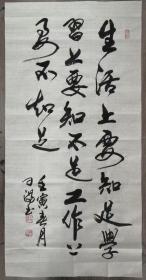 生活上要知足学
习上要知不足工作上
要不知足
壬寅春月